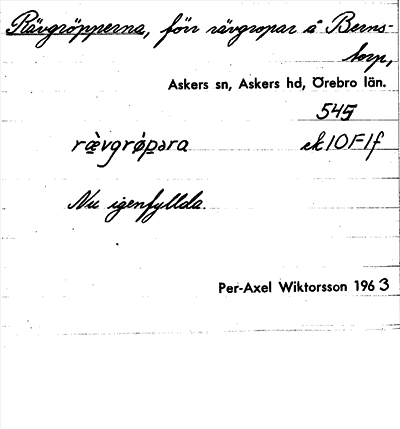 Rävgröpperna, förr rävgropar å Berns-
torp,
Askers sn, Askers hd, Örebro län.
545
ek 10 F 1f
rævgrøpəra
Nu igenfyllda.
Per-Axel Wiktorsson 1963